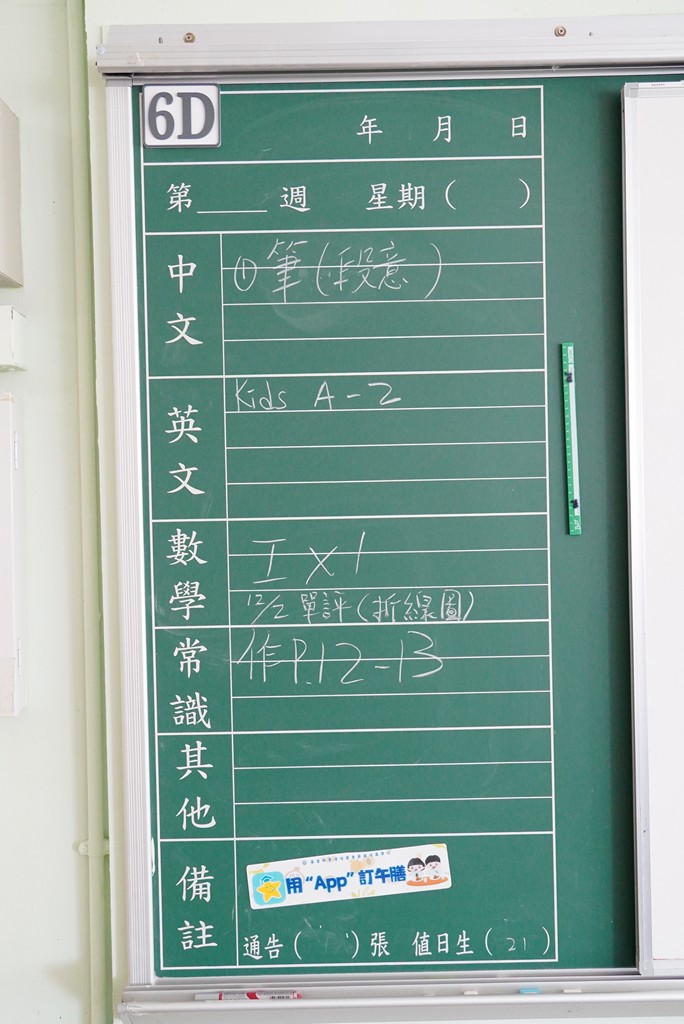 6D
年 月 日
第____週 星期( )
中文
①筆(段意)
英文
Kids A-Z
數學
工 x 1
12/2 單評(折線圖)
常識
作P.12-13
其他
備註
用“App”訂午膳
通告( )張 值日生(21)